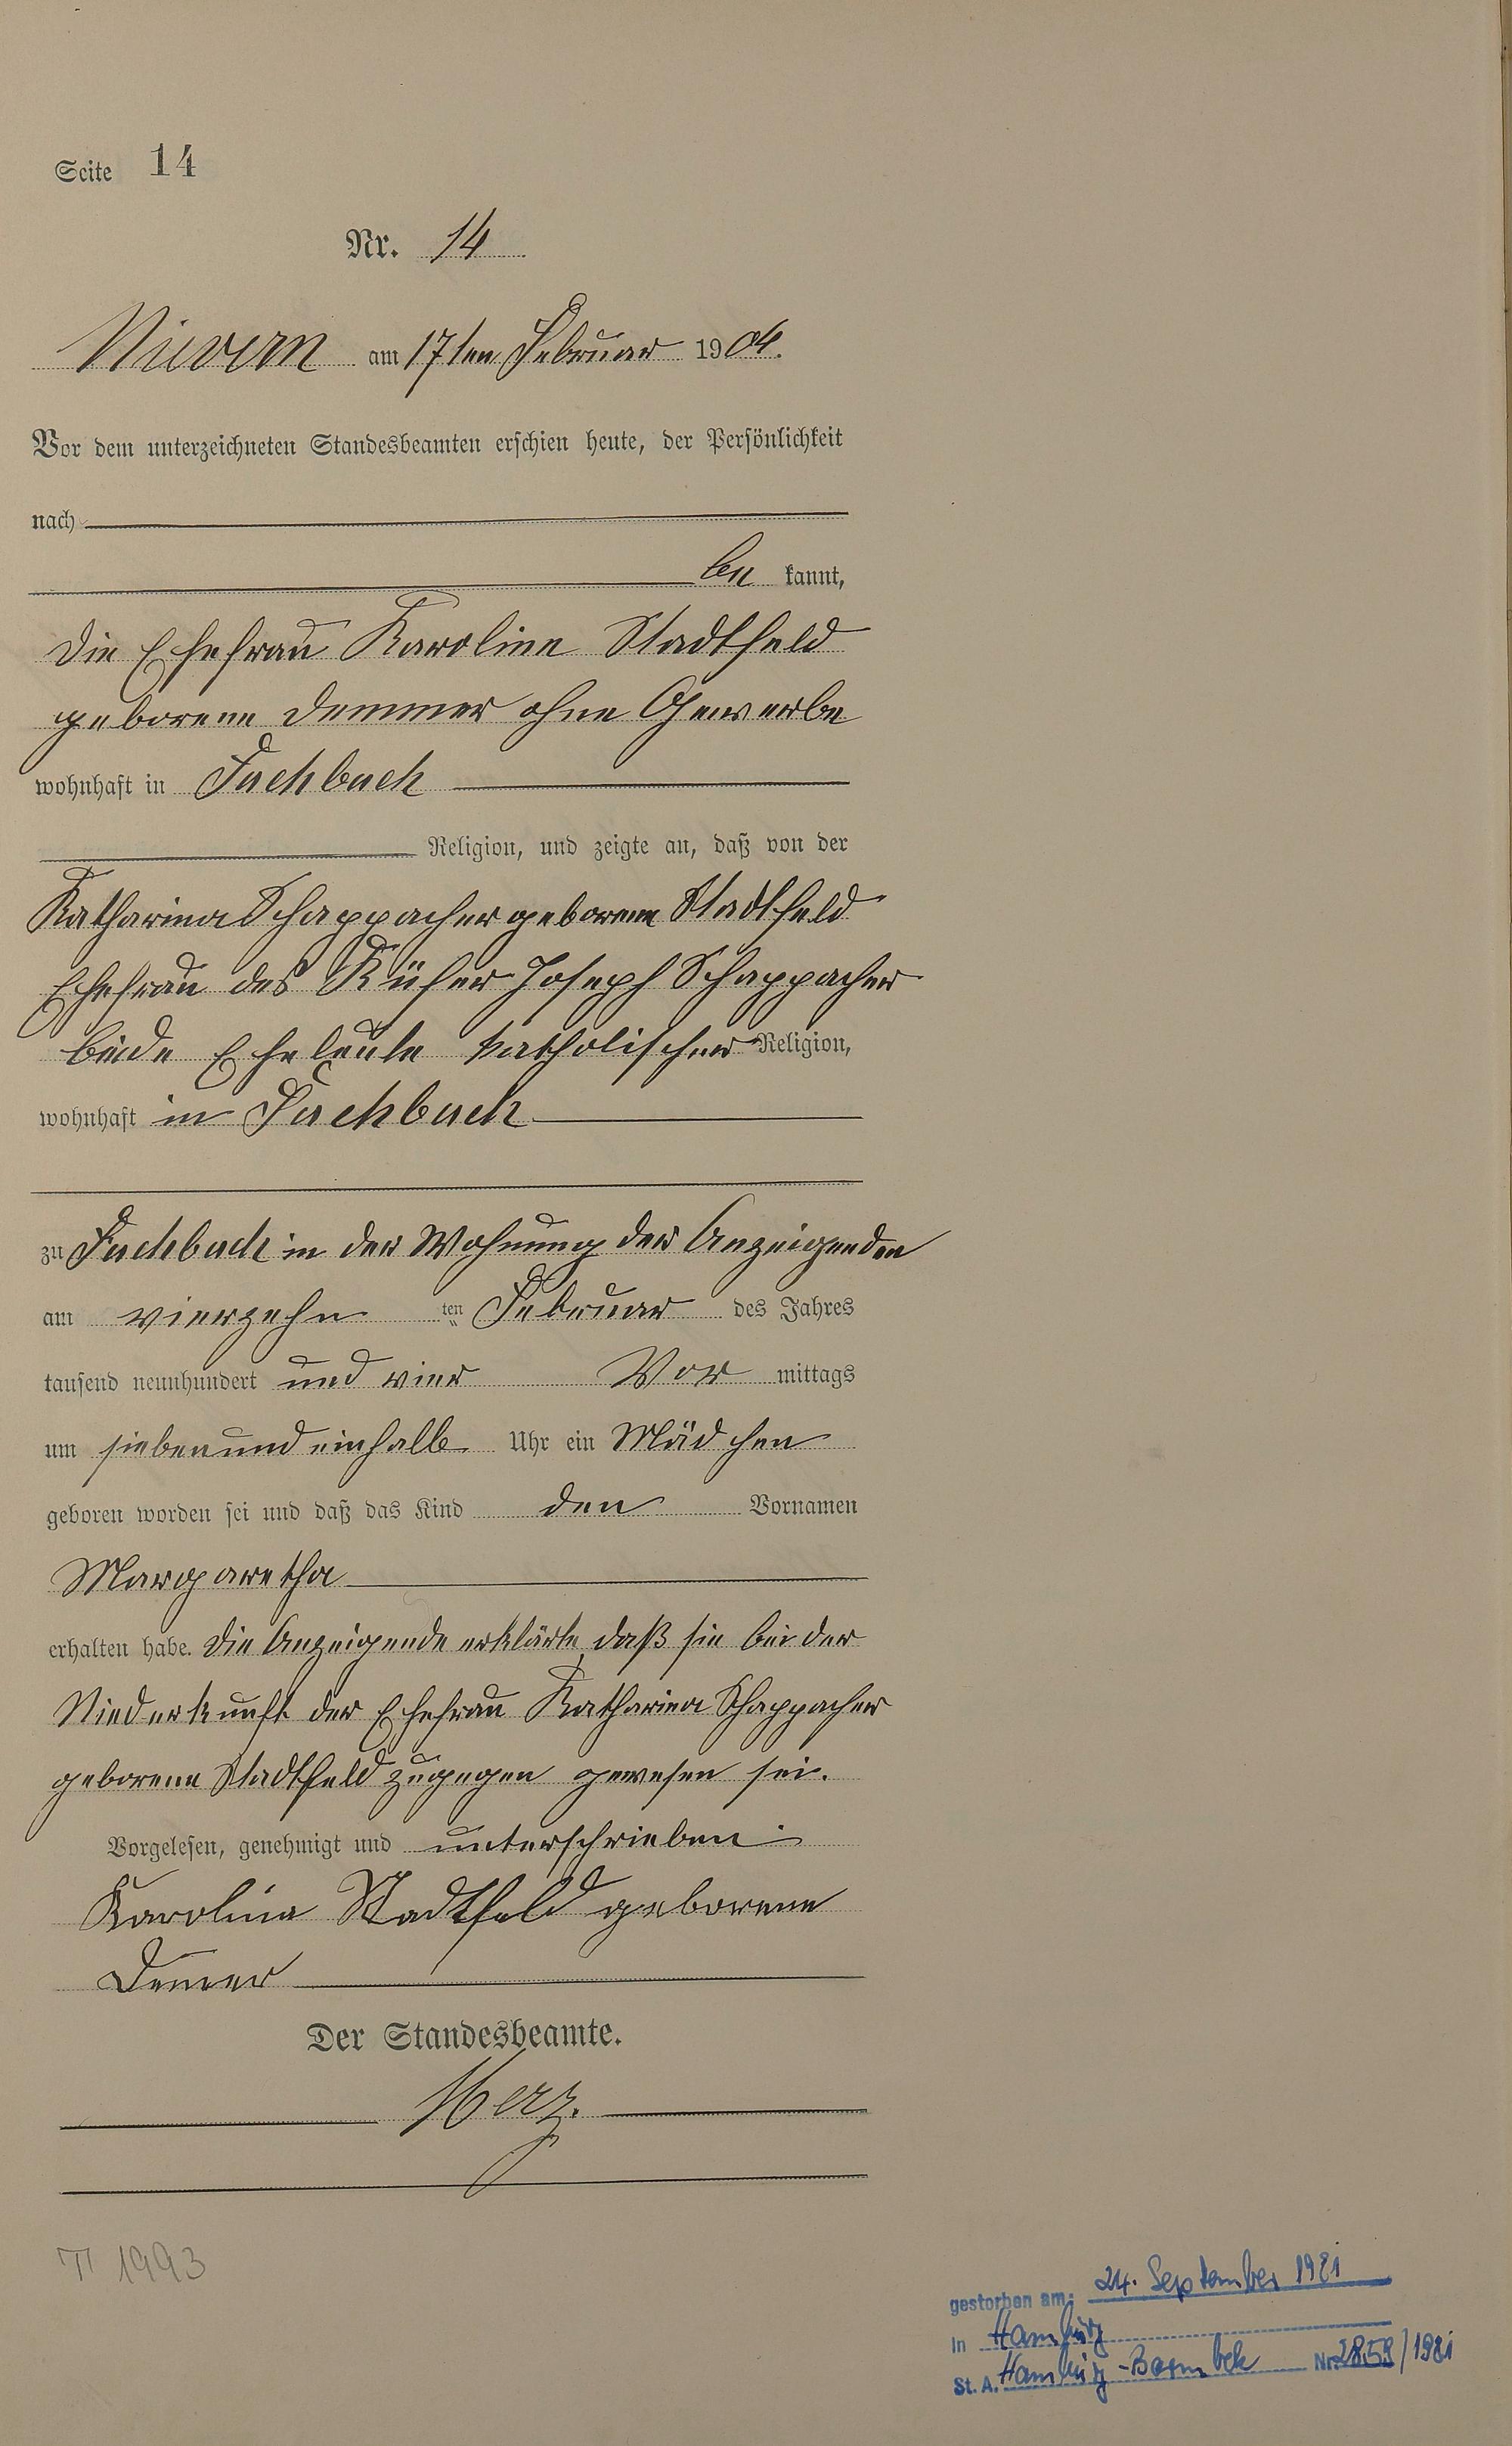 Seite 14
Nr. 14
Nievern am 17ten Februar 1904.
Vor dem unterzeichneten Standesbeamten erschien heute, der Persönlichkeit
nach
be kannt,
die Ehefrau Karoline Stadtfeld
geborene Demmer ohne Gewerbe
wohnhaft in Fachbach
Religion, und zeigte an, daß von der
Katharina Schappacher geborene Stadtfeld
Ehefrau des Küfer Joseph Schappacher
beide Eheleute katholischer Religion,
wohnhaft in Fachbach
zu Fachbach in der Wohnung der Anzeigenden
am vierzehn ten Februar des Jahres
tausend neunhundert und vier Vor mittags
um sieben und einhalb Uhr ein Mädchen
geboren worden sei und daß das Kind den Vornamen
Margaretha
erhalten habe. Die Anzeigende erklärte, daß sie bei der
Niederkunft der Ehefrau Katharina Schappacher
geborene Stadtfeld zugegen gewesen sei.
Vorgelesen, genehmigt und unterschrieben:
Karolina Stadtfeld geborene
Demer
Der Standesbeamte.
Herz.
T 1993
gestorben am: 24. September 1981
in Hamburg
St. A. Hamburg-Barmbek Nr. 2858/1981